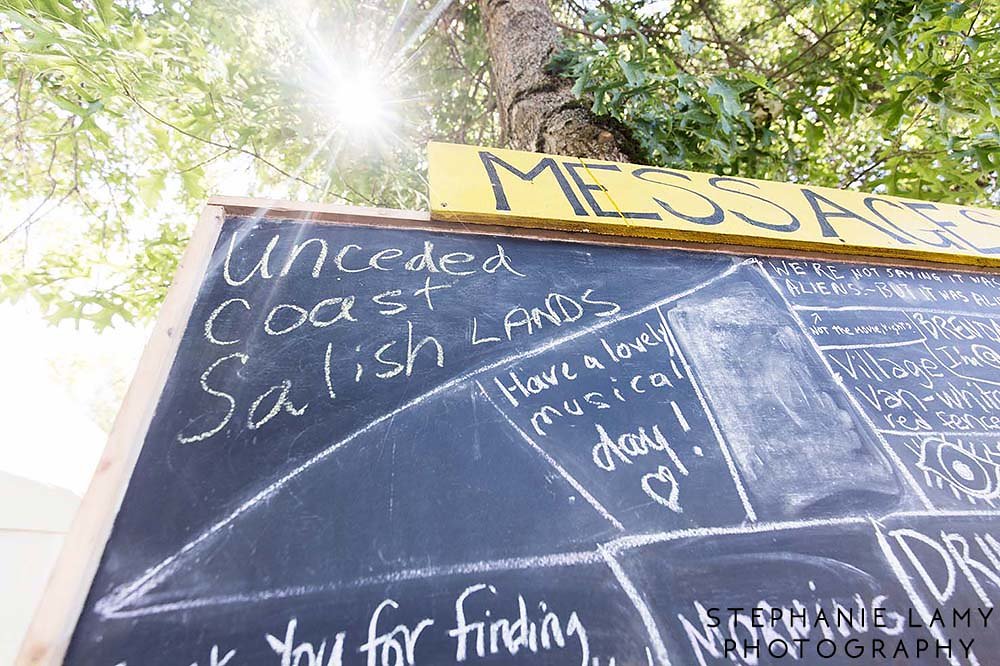 MESSAGES
Unceded
Coast
Salish LANDS
Have a lovely
musical
day!
WE'RE NOT SAYING IT WAS
ALIENS--BUT IT WAS
Not the movie
Village
Van-white
red fence
You for finding
STEPHANIE LAMY
PHOTOGRAPHY